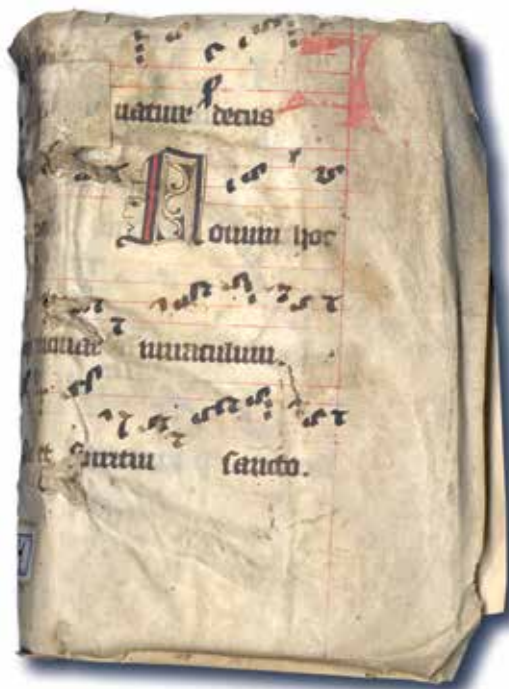 uatur decus
Nouum hoc
miraculum.
et spiritui sancto.